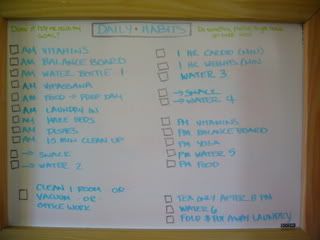 DAILY • HABITS
AM VITAMINS
AM BALANCE BOARD
AM WATER BOTTLE 1
AM VIPASSANA
AM FOOD → PREP DAY
AM LAUNDRY IN
AM MAKE BEDS
AM DISHES
AM 15 MIN CLEAN UP
→ SNACK
→ WATER 2
CLEAN 1 ROOM OR
VACUUM OR
OFFICE WORK
1 HR CARDIO (MIN)
1 HR WEIGHTS (MIN)
WATER 3
→ SNACK
→ WATER 4
PM VITAMINS
PM BALANCE BOARD
PM YOGA
PM WATER 5
PM FOOD
TEA ONLY AFTER 8 PM
WATER 6
FOLD & PUT AWAY LAUNDRY